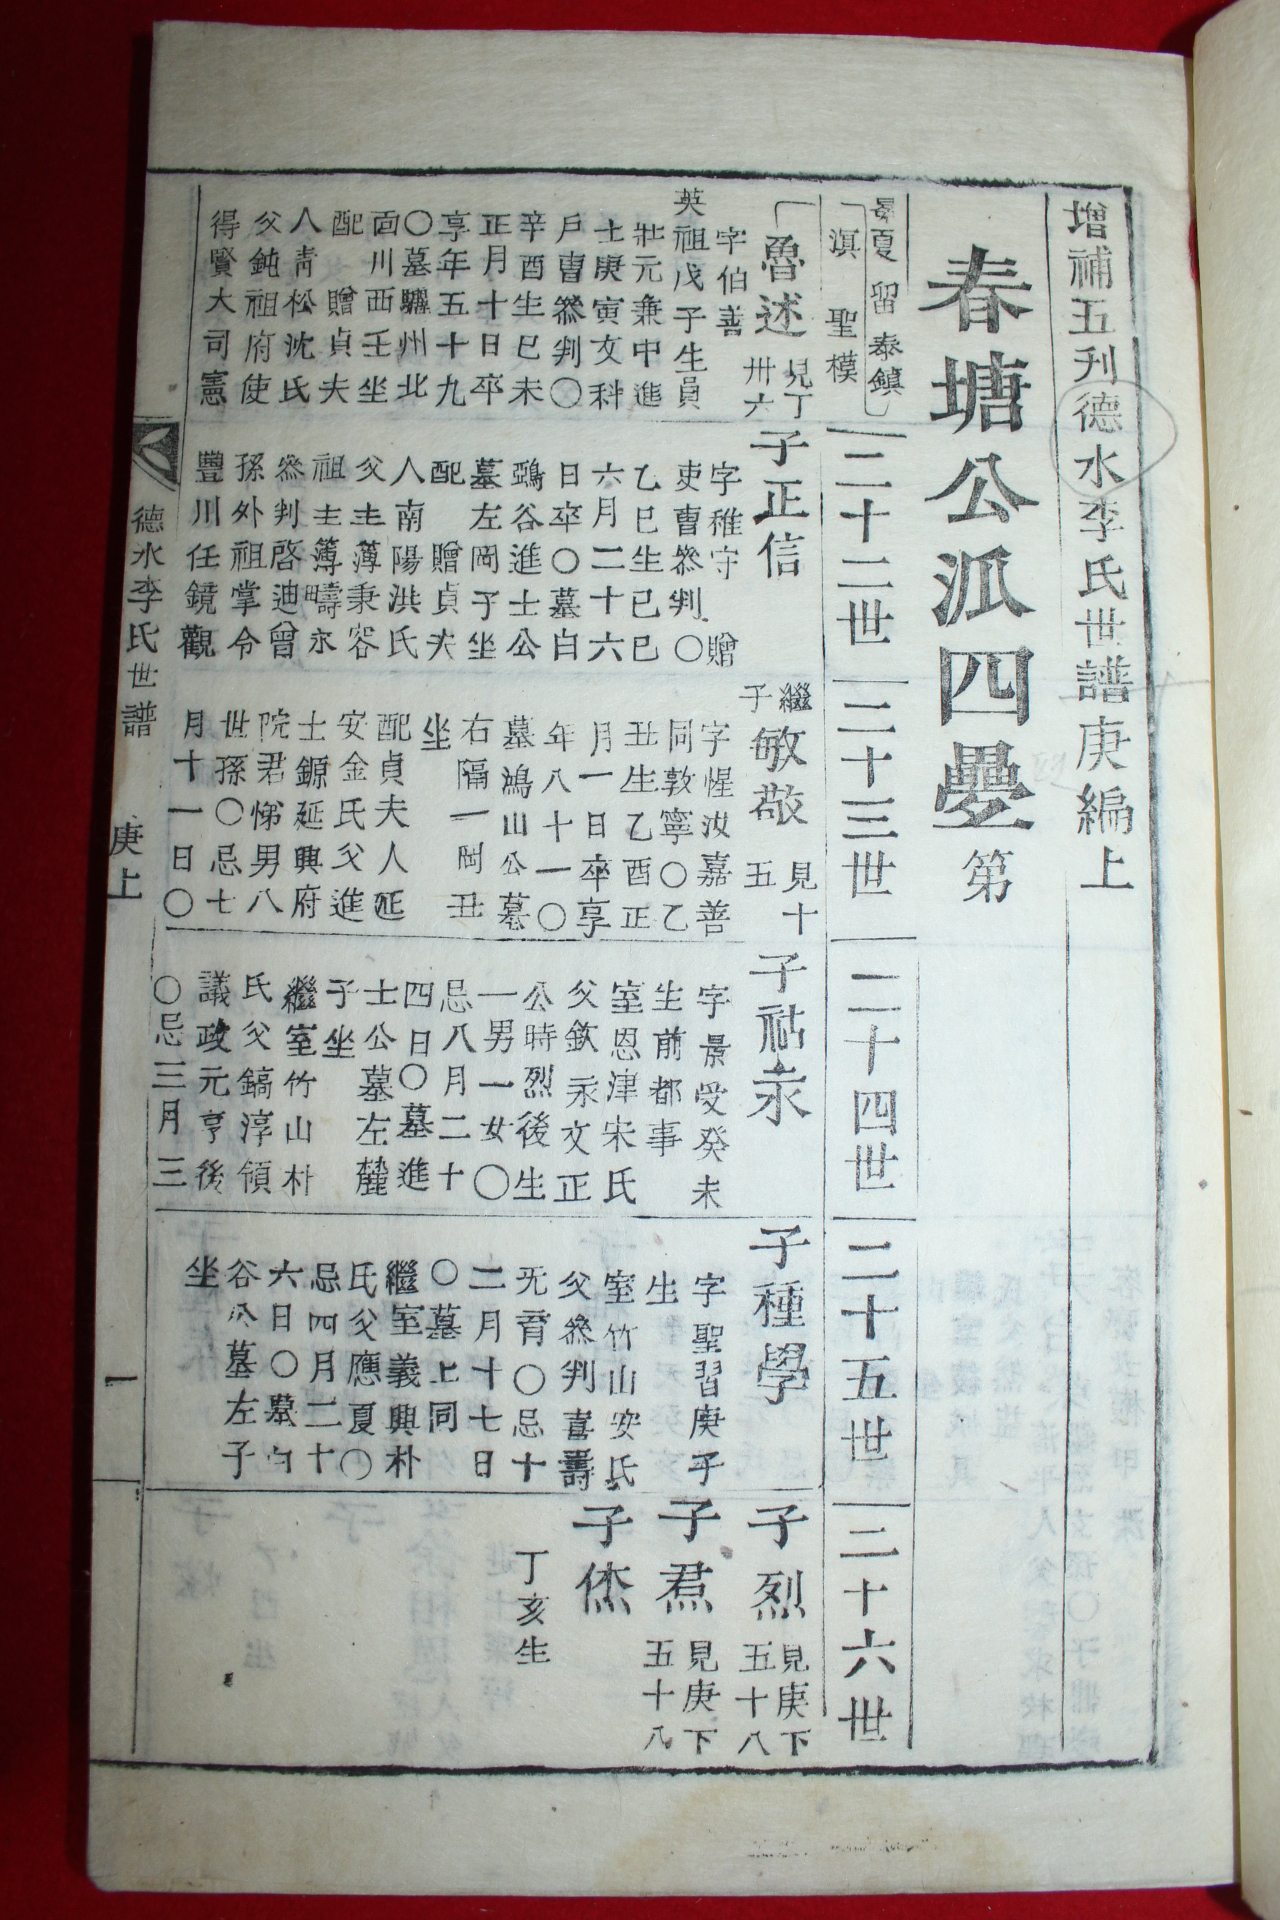 增補五刋德水李氏世譜庚編上
春塘公派四疊第
景夏 留 泰鎮
淇 聖模
二十二世
二十三世
二十四世
二十五世
二十六世
魯述
見丁
卅六
字伯善
英祖戊子生員
壯元兼中進
士庚寅文科
戶曹叅判〇
辛酉生巳未
正月十日卒
享年五十九
〇墓驪州北
面川西壬坐
配 贈貞夫
人青松沈氏
父鈍祖府使
得賢大司憲
子正信
字稚守 贈
吏曹叅判〇
乙巳生己巳
六月二十六
日卒〇墓白
鵶谷進士公
墓左岡子坐
配 贈貞夫
人南陽洪氏
父主薄秉容
祖主簿疇永
叅判啓迪曾
孫外祖掌令
豐川任鏡觀
繼
子敏敬
見十
五
字惺汝嘉善
同敦寧〇乙
丑生乙酉正
月一日卒享
年八十一〇
墓鴻山公墓
右隔一岡丑
坐
配貞夫人延
安金氏父進
士鎤延興府
院君悌男八
世孫〇忌七
月十一日〇
子祜永
字景受癸未
生前都事
室恩津宋氏
父欽永文正
公時烈後生
一男一女〇
忌八月二十
四日〇墓進
士公墓左麓
子坐
繼室竹山朴
氏父鎬淳領
議政元亨後
〇忌三月三
子種學
字聖習庚子
生
室竹山安氏
父叅判喜壽
无育〇忌十
二月十七日
〇墓上同
繼室義興朴
氏父應夏〇
忌四月二十
六日〇墓白
谷公墓左子
坐
子烈
見庚下
五十八
子焄
見庚下
五十八
子烋
丁亥生
德水李氏世譜 庚上 一